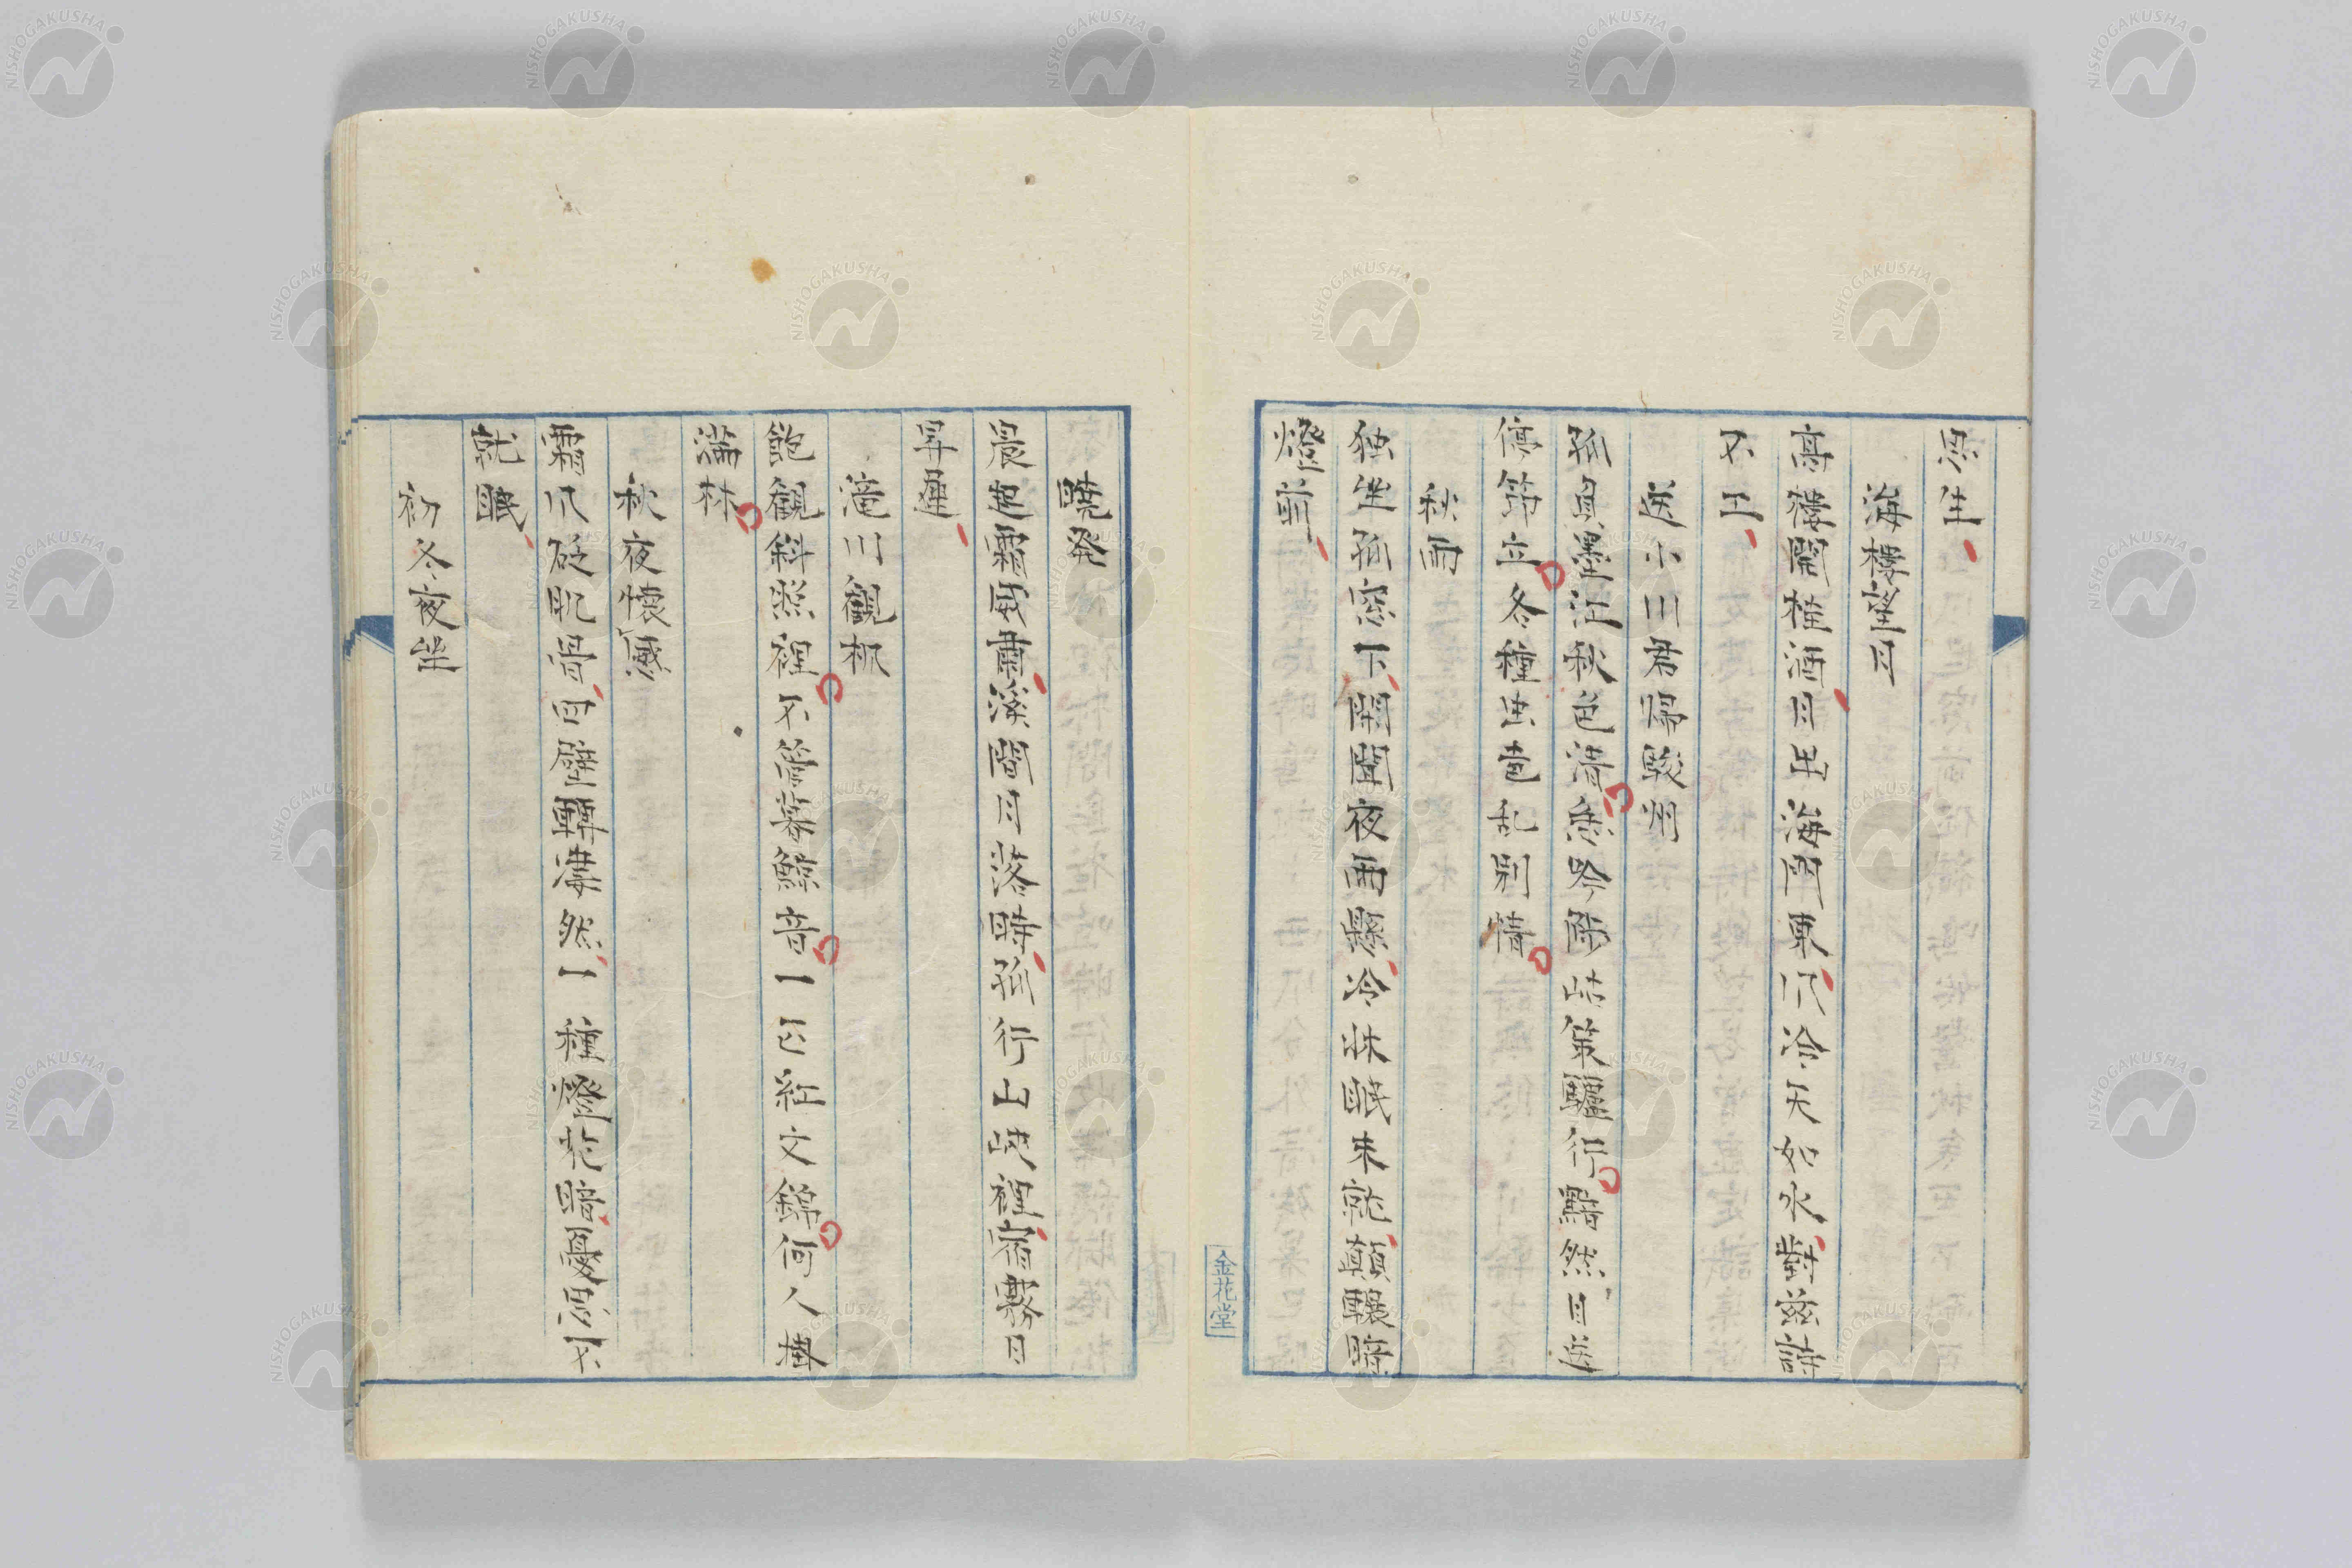 思生
海楼望月
高楼開槛酒月出海門東爪冷天如水對茲詩
不工
送小川君帰駿州
孤負墨江秋色清愁吟断時策驢行黯然目送
停筇立冬種虫声乱別情
秋雨
独坐孤窓下閑聞夜雨懸冷牀眠未就顛轉暗
燈前
暁発
晨起霜威肅溪間月落時孤行山路裡宿霧日
昇遲
滝川観楓
飽観斜照裡不管暮鯨音一已紅文錦何人掛
満林
秋夜懐感
霜爪砭肌骨四壁轉凄然一種燈花暗憂思不
就眠
初冬夜坐
金花堂
NISHOGAKUSHA